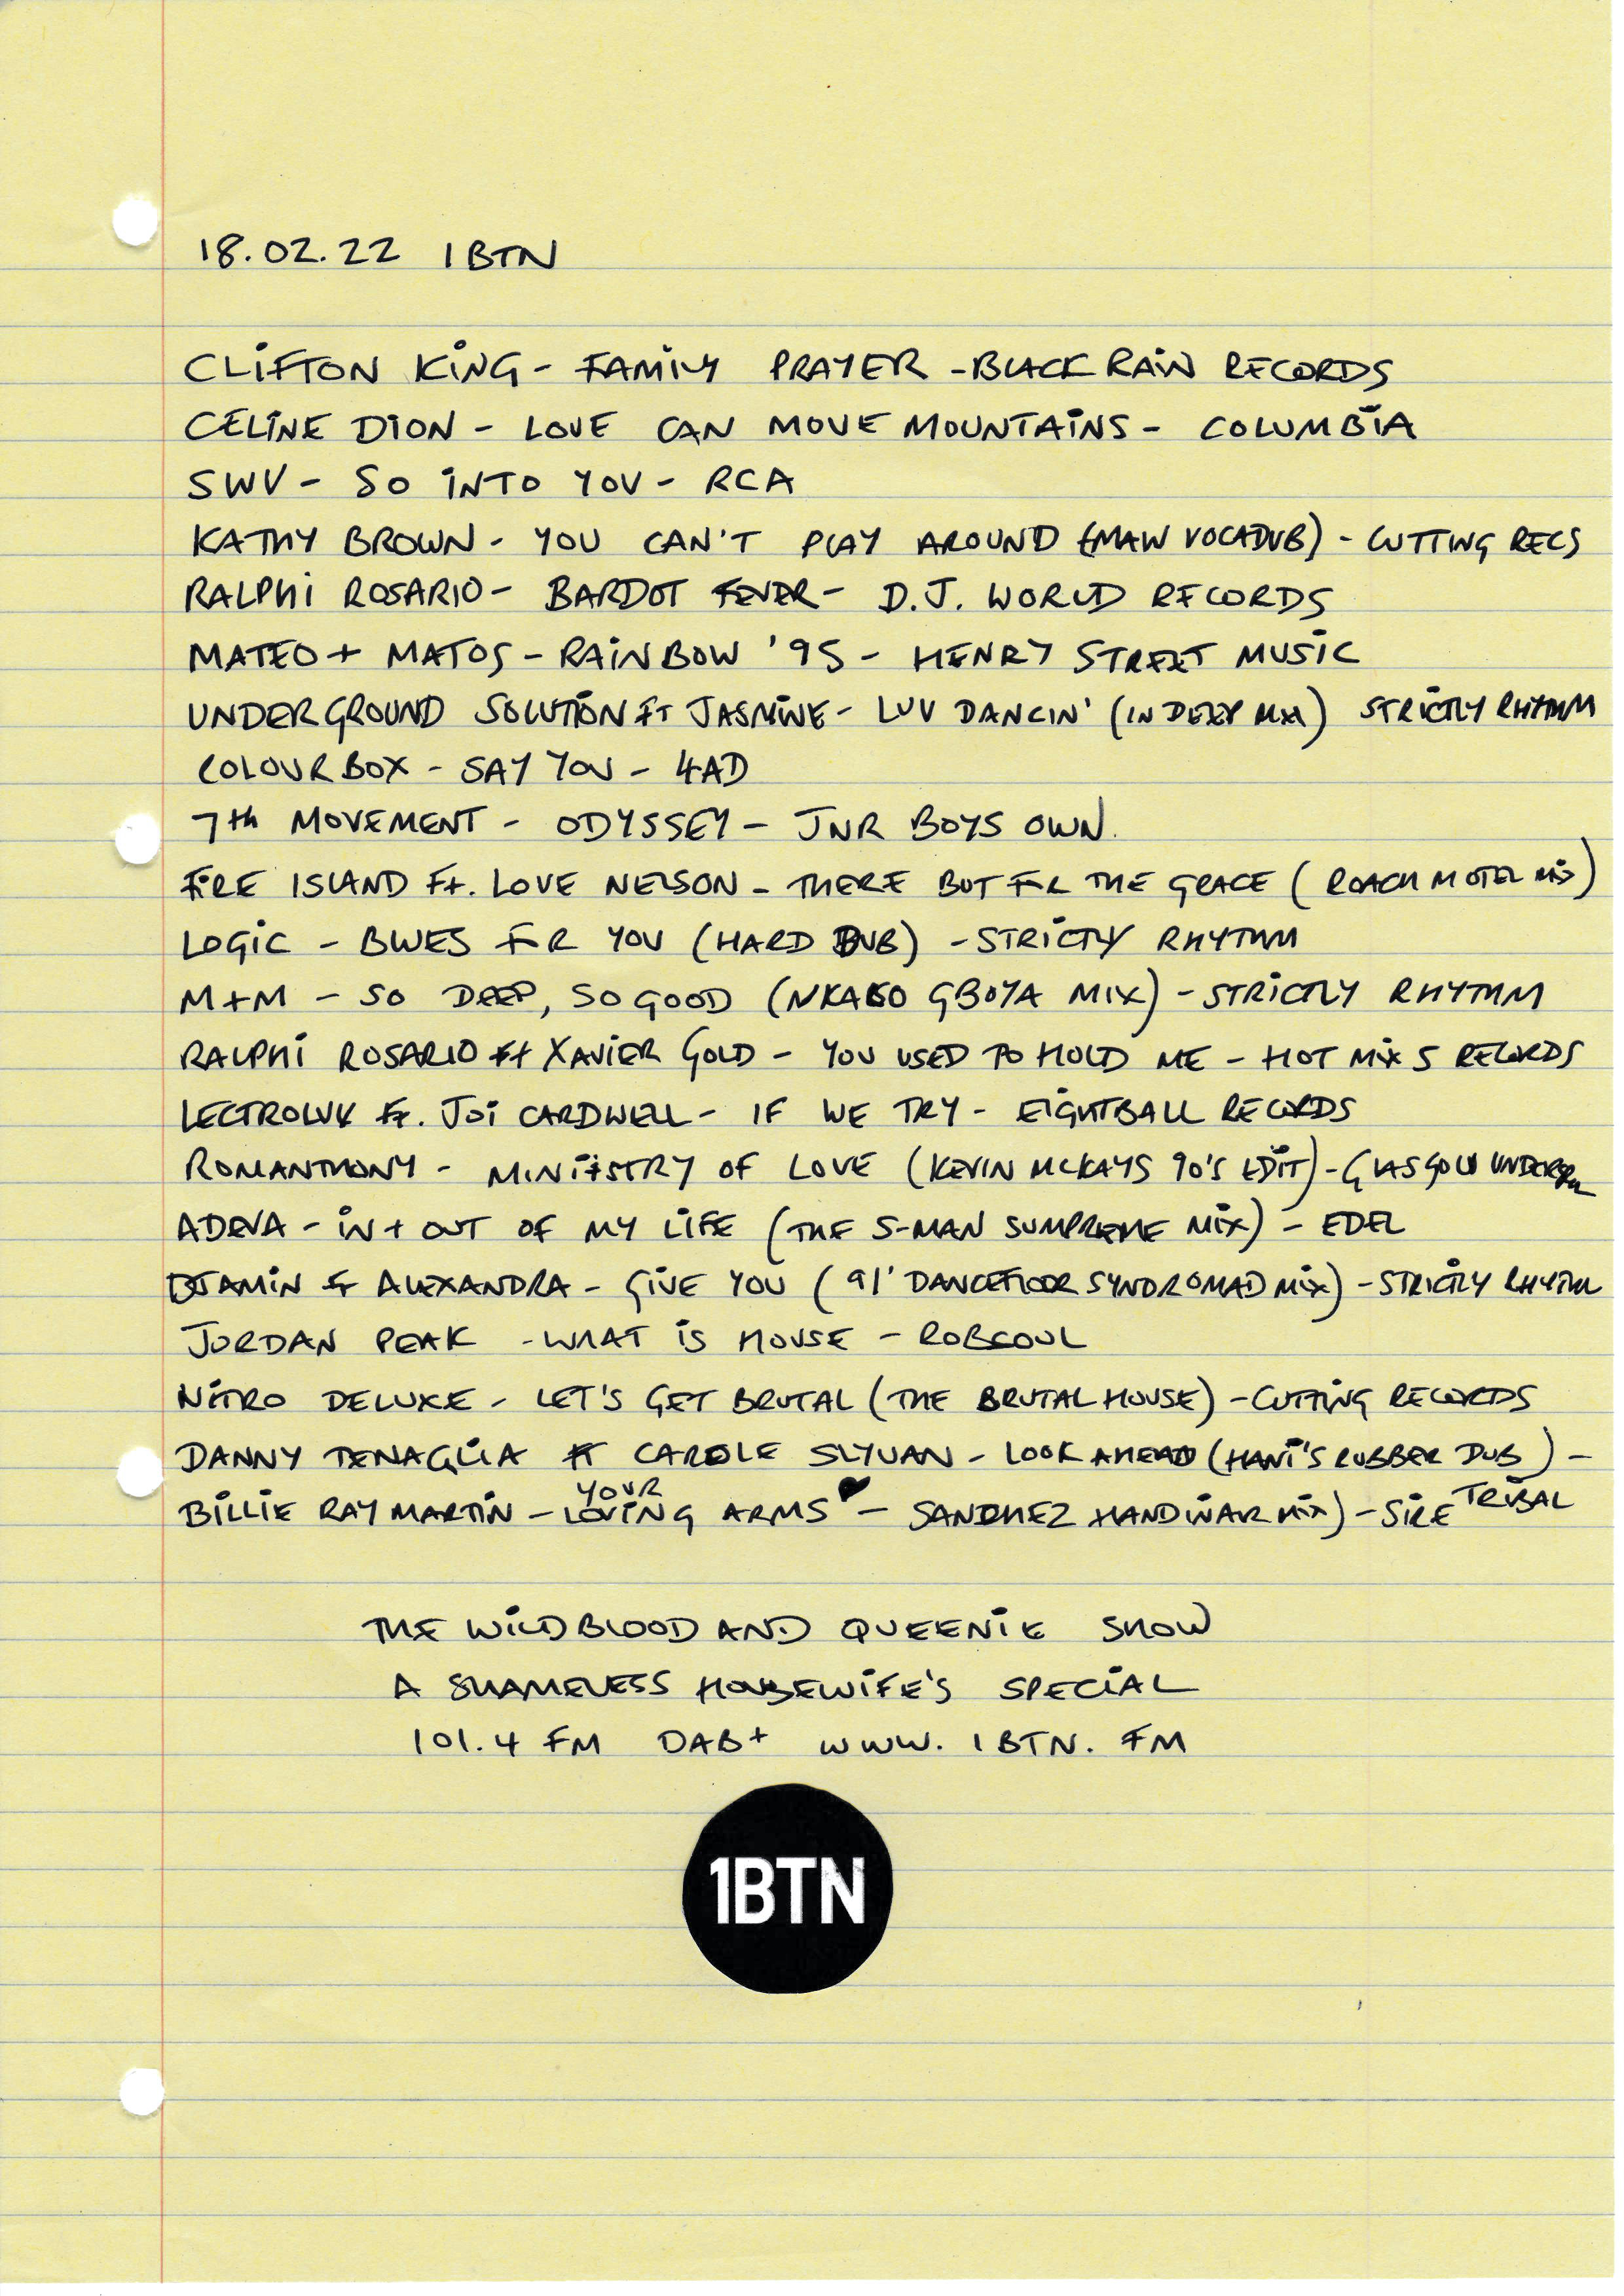 18.02.22 1BTN
CLIFTON KING - FAMILY PRAYER - BLACK RAIN RECORDS
CELINE DION - LOVE CAN MOVE MOUNTAINS - COLUMBIA
SWV - SO INTO YOU - RCA
KATHY BROWN - YOU CAN'T PLAY AROUND (MAW VOCADUB) - CUTTING RECS
RALPHI ROSARIO - BARDOT FEVER - D.J. WORLD RECORDS
MATEO + MATOS - RAINBOW '95 - HENRY STREET MUSIC
UNDERGROUND SOLUTION FT JASMINE - LUV DANCIN' (IN DEEP MIX) STRICTLY RHYTHM
COLOURBOX - SAY YOU - 4AD
7th MOVEMENT - ODYSSEY - JNR BOYS OWN.
FIRE ISLAND Ft. LOVE NELSON - THERE BUT FOR THE GRACE (ROACH MOTEL MIX)
LOGIC - BLUES FOR YOU (HARD DUB) - STRICTLY RHYTHM
M+M - SO DEEP, SO GOOD (NKABO GBOYA MIX) - STRICTLY RHYTHM
RALPHI ROSARIO Ft XAVIER GOLD - YOU USED TO HOLD ME - HOT MIX 5 RECORDS
LECTROLUV Ft. JOI CARDWELL - IF WE TRY - EIGHTBALL RECORDS
ROMANTHONY - MINIISTRY OF LOVE (KEVIN MCKAYS 90'S EDIT) - GLASGOW UNDERGR
ADEVA - IN + OUT OF MY LIFE (THE S-MAN SUMPREME MIX) - EDEL
DJAMIN Ft ALEXANDRA - GIVE YOU (91' DANCEFLOOR SYNDROMAD MIX) - STRICTLY RHYTHM
JORDAN PEAK - WHAT IS HOUSE - ROBSOUL
NITRO DELUXE - LET'S GET BRUTAL (THE BRUTAL HOUSE) - CUTTING RECORDS
DANNY TENAGLIA Ft CAROLE SLYVAN - LOOK AHEAD (HANI'S RUBBER DUB) - TRIBAL
BILLIE RAY MARTIN - YOUR LOVING ARMS - SANCHEZ HANDIWAR MIX) - SIRE
THE WILDBLOOD AND QUEENIE SHOW
A SHAMELESS HOUSEWIFE'S SPECIAL
101.4 FM DAB+ WWW.1BTN.FM
1BTN